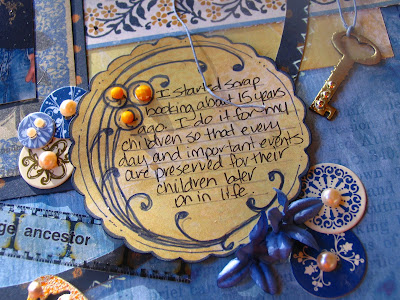 I started scrap
booking about 15 years
ago. I do it for my
children so that every
day and important events
are preserved for their
children later
on in life
ge ancestor